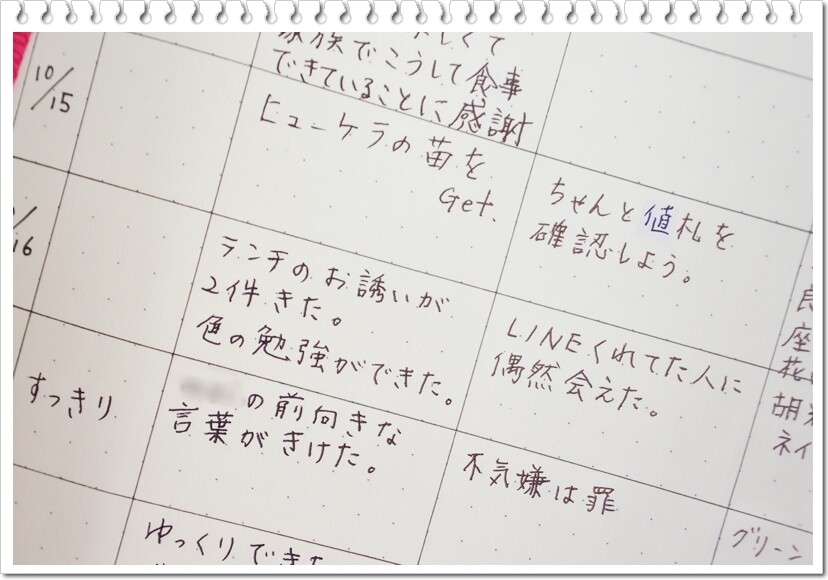 家族でこうして食事
できていることに感謝
10/15
ヒューケラの苗を
Get.
ちゃんと値札を
確認しよう。
16
ランチのお誘いが
2件きた。
色の勉強ができた。
LINEくれてた人に
偶然会えた。
座
花
胡
ネイ
すっきり
の前向きな
言葉がきけた。
不気嫌は罪
ゆっくりできた
グリーン